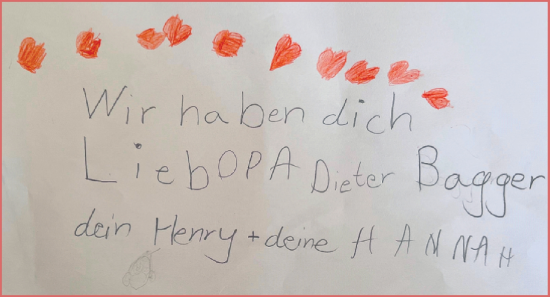 Wir haben dich
Lieb OPA Dieter Bagger
dein Henry + deine HANNAH